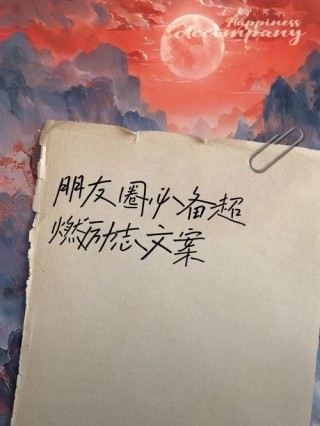 Happiness
accompany
朋友圈必备超
燃励志文案